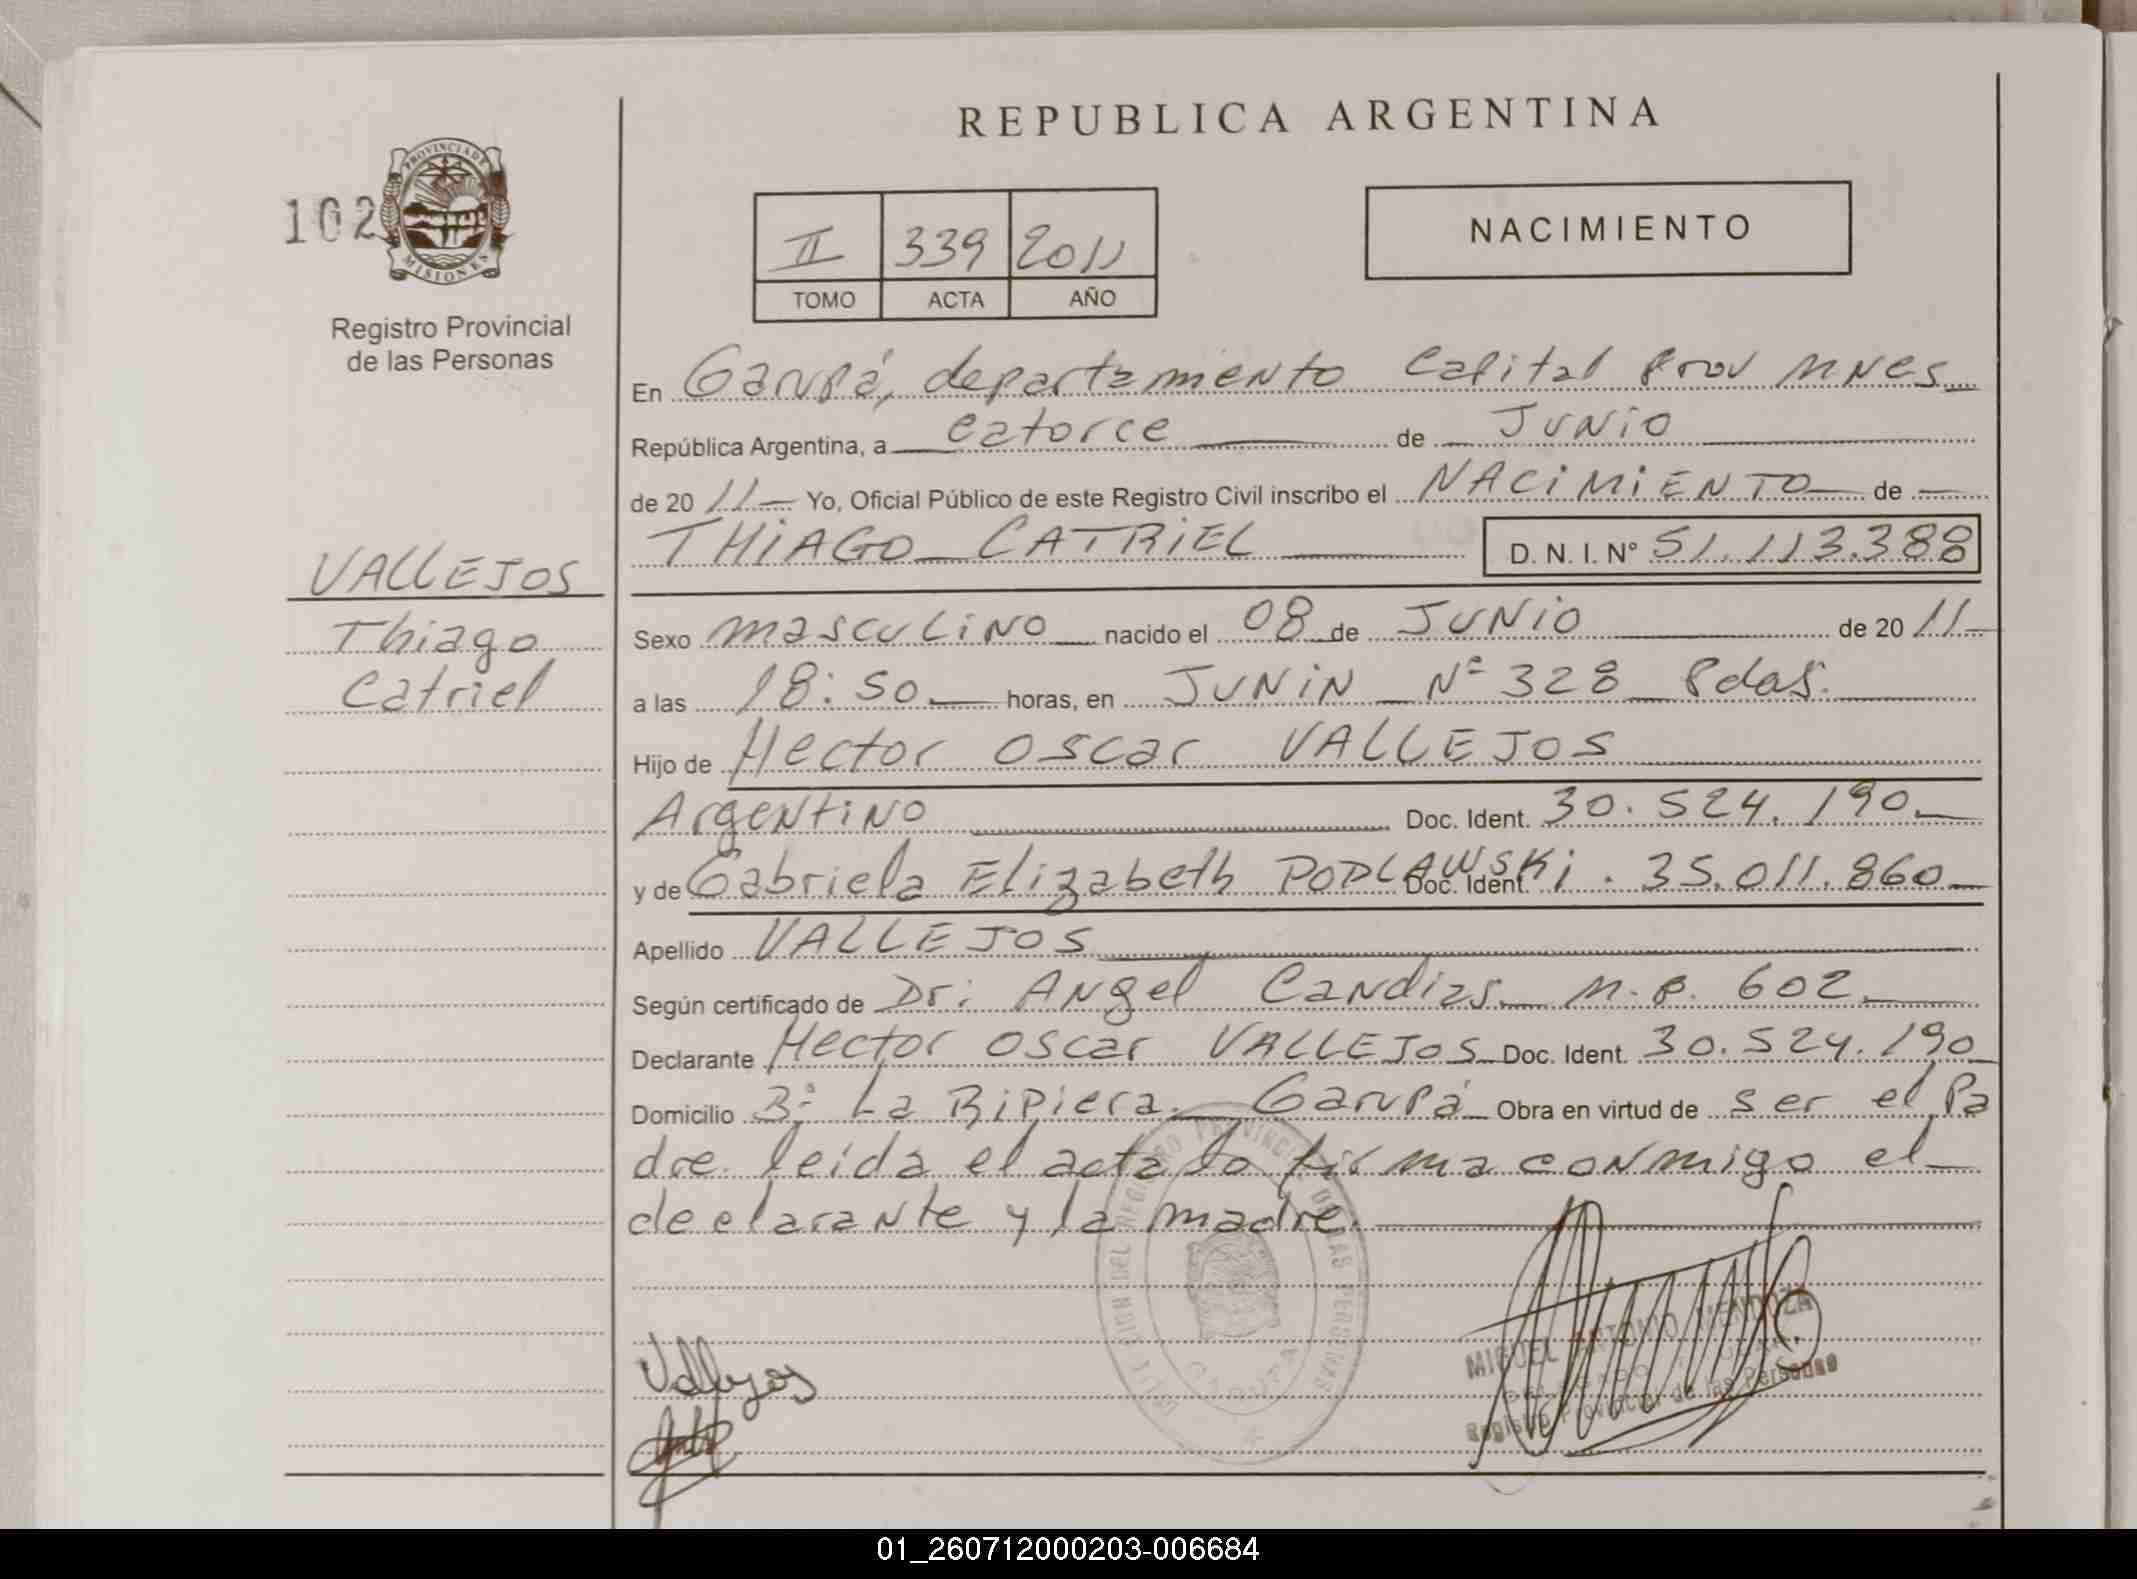 REPUBLICA ARGENTINA
102
PROVINCIA DE
MISIONES
Registro Provincial
de las Personas
II 339 2011
TOMO ACTA AÑO
NACIMIENTO
En Garupá, departamento Capital Prov MNES
República Argentina, a catorce de JUNIO
de 20 11 Yo, Oficial Público de este Registro Civil inscribo el NACIMIENTO de
THIAGO CATRIEL D. N. I. N° 51.113.388
VALLEJOS
Thiago
Catriel
Sexo masculino nacido el 08 de JUNIO de 20 11
a las 18:50 horas, en JUNIN N° 328 Pdas.
Hijo de Hector Oscar VALLEJOS
Argentino Doc. Ident. 30.524.190
y de Gabriela Elizabeth PODLAWSKi Doc. Ident. 35.011.860
Apellido VALLEJOS
Según certificado de Dr: Angel Candias M.P. 602
Declarante Hector Oscar VALLEJOS Doc. Ident. 30.524.190
Domicilio B° La Ripiera. Garupá Obra en virtud de ser el Pa
dre. leida el acta la firma conmigo el
declarante y la madre.
Vallejos
MIGUEL ANTONIO MENDOZA
Registro Provincial de las Personas
GARUPA
01_260712000203-006684